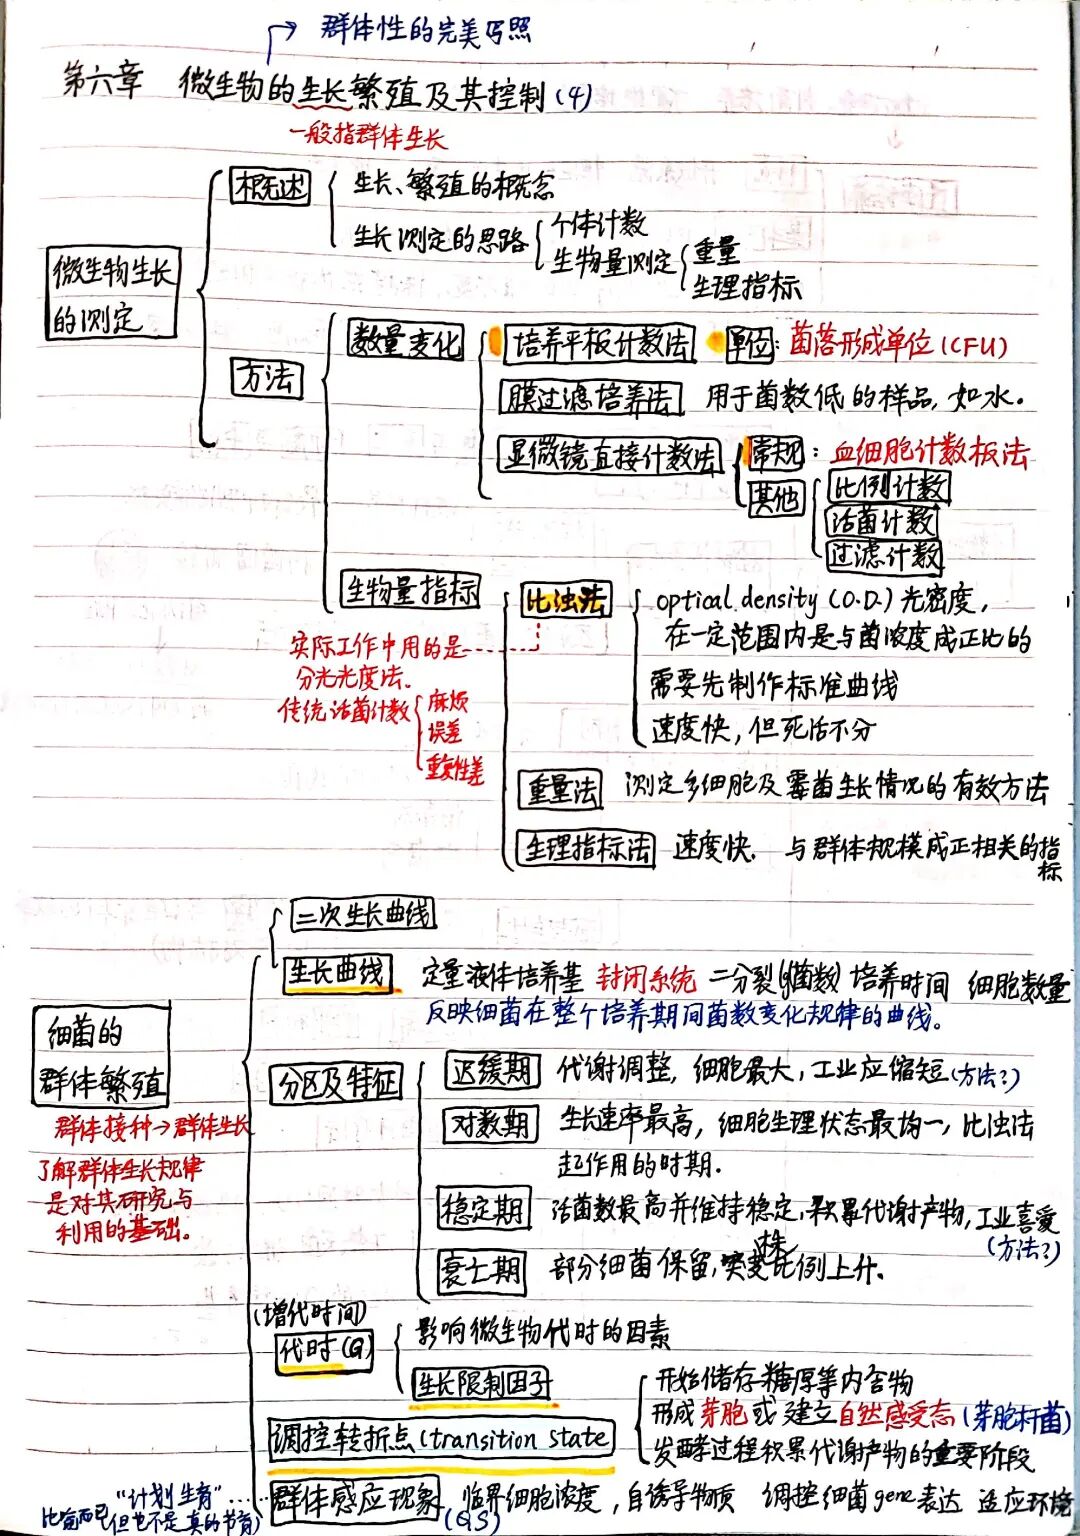 群体性的完美写照
第六章 微生物的生长繁殖及其控制(4)
一般指群体生长
微生物生长的测定
概述
生长、繁殖的概念
生长测定的思路
个体计数
生物量测定
重量
生理指标
方法
数量变化
培养平板计数法 单位:菌落形成单位(CFU)
膜过滤培养法 用于菌数低的样品,如水。
显微镜直接计数法
常规:血细胞计数板法
其他
比例计数
活菌计数
过滤计数
生物量指标
比浊法
optical density (O.D.) 光密度,
在一定范围内是与菌浓度成正比的
需要先制作标准曲线
速度快,但死活不分
实际工作中用的是
分光光度法.
传统活菌计数
麻烦
误差
重复性差
重量法 测定多细胞及霉菌生长情况的有效方法
生理指标法 速度快. 与群体规模成正相关的指标
细菌的群体繁殖
二次生长曲线
生长曲线 定量液体培养基 封闭系统 二分裂(lg菌数) 培养时间 细胞数量
反映细菌在整个培养期间菌数变化规律的曲线。
群体接种→群体生长
了解群体生长规律
是对其研究与
利用的基础.
分区及特征
迟缓期 代谢调整,细胞最大,工业应缩短(方法?)
对数期 生长速率最高,细胞生理状态最均一,比浊法
起作用的时期.
稳定期 活菌数最高并维持稳定,积累代谢产物,工业喜爱
(方法?)
衰亡期 部分细菌保留,突变株比例上升.
(增代时间)
代时(G)
影响微生物代时的因素
生长限制因子
调控转折点(transition state
开始储存糖原等内含物
形成芽胞或建立自然感受态(芽胞杆菌)
发酵过程积累代谢产物的重要阶段
群体感应现象 临界细胞浓度,自诱导物质 调控细菌gene表达 适应环境
(QS)
"计划生育"……
比喻而已(但也不是真的节育)